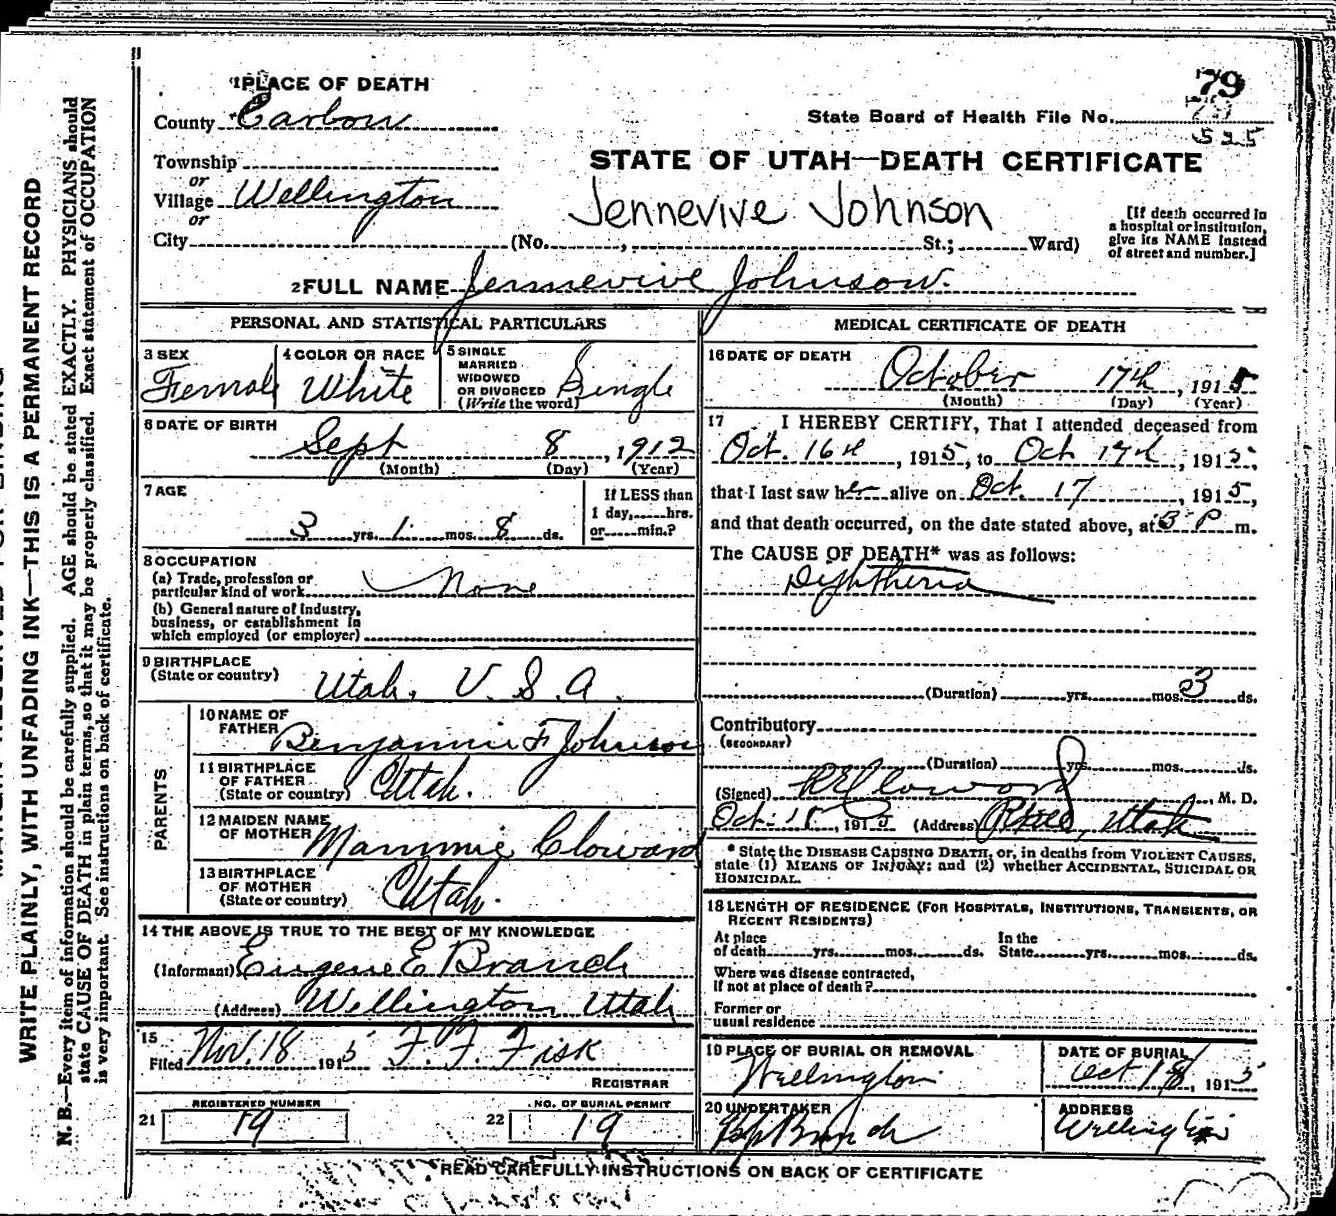 79
1 PLACE OF DEATH
County Carbon
State Board of Health File No.
525
Township
or
Village Wellington
or
City (No. , St.; Ward)
STATE OF UTAH—DEATH CERTIFICATE
Jennevive Johnson
[If death occurred in
a hospital or institution,
give its NAME instead
of street and number.]
2 FULL NAME Jennevive Johnson.
PERSONAL AND STATISTICAL PARTICULARS
3 SEX
Female
4 COLOR OR RACE
White
5 SINGLE
MARRIED
WIDOWED
OR DIVORCED
(Write the word)
Single
6 DATE OF BIRTH
Sept 8, 1912
(Month) (Day) (Year)
7 AGE
3 yrs. 1 mos. 8 ds.
If LESS than
1 day, hrs.
or min.?
8 OCCUPATION
(a) Trade, profession or
particular kind of work None
(b) General nature of industry,
business, or establishment in
which employed (or employer)
9 BIRTHPLACE
(State or country) Utah, U.S.A.
PARENTS
10 NAME OF
FATHER Benjamin F Johnson
11 BIRTHPLACE
OF FATHER
(State or country) Utah.
12 MAIDEN NAME
OF MOTHER Mammie Cloward
13 BIRTHPLACE
OF MOTHER
(State or country) Utah.
14 THE ABOVE IS TRUE TO THE BEST OF MY KNOWLEDGE
(Informant) Eugene E Branch
(Address) Wellington Utah
15
Filed Nov. 18 1915 F. F. Fisk
REGISTRAR
21 REGISTERED NUMBER
19
22 NO. OF BURIAL PERMIT
19
MEDICAL CERTIFICATE OF DEATH
16 DATE OF DEATH
October 17th, 1915
(Month) (Day) (Year)
17 I HEREBY CERTIFY, That I attended deceased from
Oct. 16th, 1915, to Oct 17th, 1915,
that I last saw her alive on Oct. 17, 1915,
and that death occurred, on the date stated above, at 3 P m.
The CAUSE OF DEATH* was as follows:
Diphtheria
(Duration) yrs. mos. 3 ds.
Contributory
(SECONDARY)
(Duration) yrs. mos. ds.
(Signed) Cloward, M. D.
Oct. 18, 1915 (Address) Price, Utah
* State the DISEASE CAUSING DEATH, or, in deaths from VIOLENT CAUSES,
state (1) MEANS OF INJURY; and (2) whether ACCIDENTAL, SUICIDAL OR
HOMICIDAL.
18 LENGTH OF RESIDENCE (FOR HOSPITALS, INSTITUTIONS, TRANSIENTS, OR
RECENT RESIDENTS)
At place
of death yrs. mos. ds.
In the
State yrs. mos. ds.
Where was disease contracted,
if not at place of death?
Former or
usual residence
19 PLACE OF BURIAL OR REMOVAL
Wellington
DATE OF BURIAL
Oct 18, 1915
20 UNDERTAKER
Branch
ADDRESS
Wellington
READ CAREFULLY INSTRUCTIONS ON BACK OF CERTIFICATE
WRITE PLAINLY, WITH UNFADING INK—THIS IS A PERMANENT RECORD
N. B.—Every item of information should be carefully supplied. AGE should be stated EXACTLY. PHYSICIANS should
state CAUSE OF DEATH in plain terms, so that it may be properly classified. Exact statement of OCCUPATION
is very important. See instructions on back of certificate.